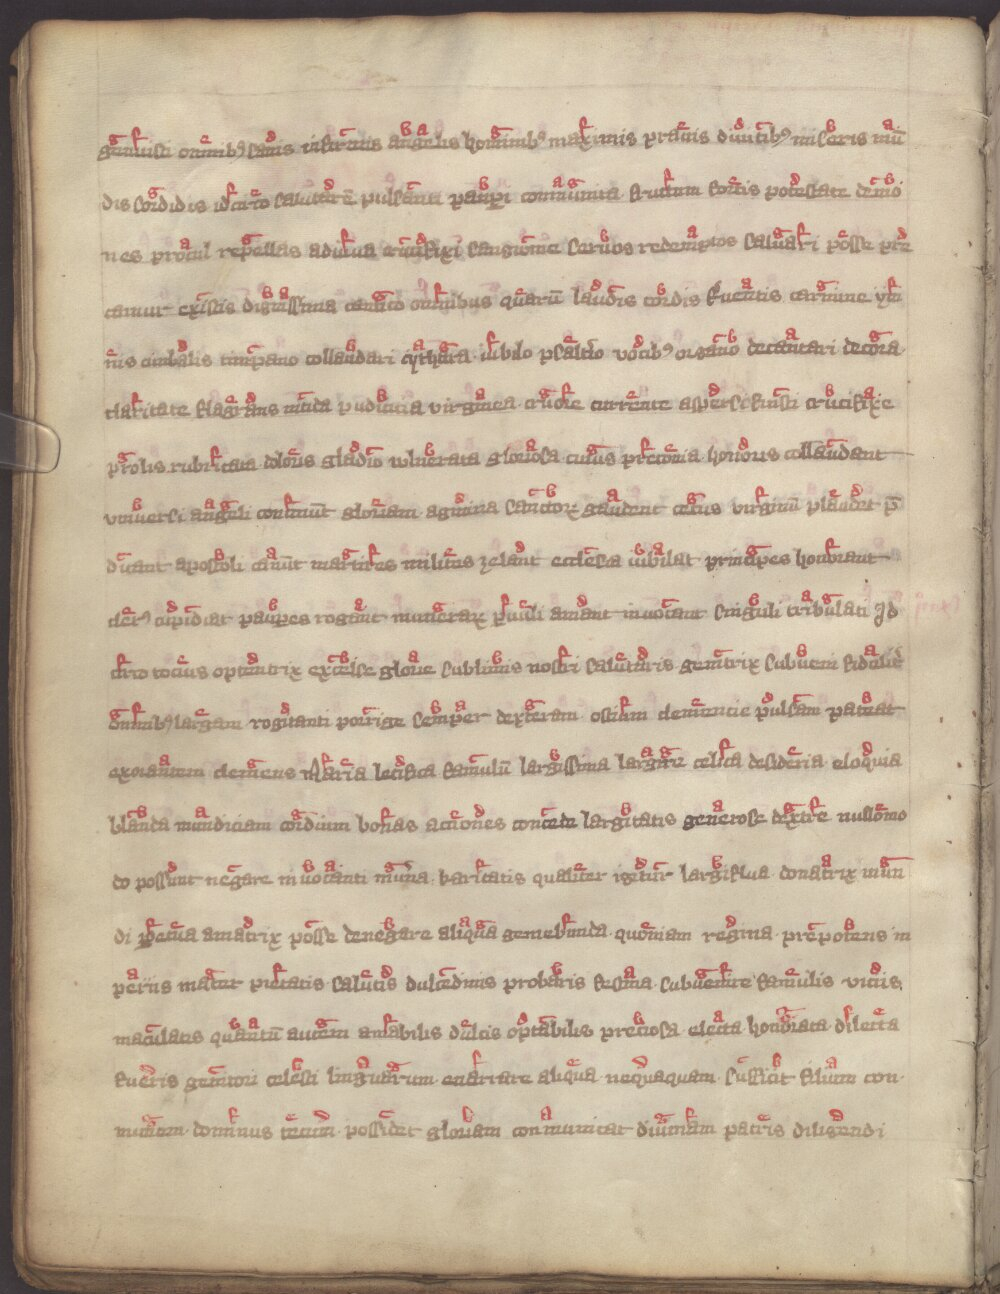 genuisti omnibꝰ sanis infirmis angelis hominibꝰ maximis prauis diuitibꝰ miseris mū
dis sordidis salutarē pulsanti pauꝑi communita fructum fortis potestate demo
nes procul repellas adiuua crucifixi sanguine seruos redemptos saluari posse pre
camur existis dignissima cantico omnibus quarū laudis cordis fuentis carmine ym
nis cimbalis timpano collaudari cythara iubilo psalterio uocibꝰ organo decantari decora
claritate flagrans nitida pudicitia virginea cruore currente crucifixe
prolis rubricata doloris gladio uulnerata gloriosa cuius preconia honoris collaudant
vniuersi angeli continuūt gloriam agmina sanctoꝝ gaudent cetus virginū plaudet p̄
dicant apostoli canūt martires milites zelant ecclesia iubilat principes honorant
clerꝰ pauꝑes rogant munerari paruuli amant inuocant singuli tribulati Id
circo tocius optentrix excelse glorie sublimis nostri salutaris genitrix subueni
omnibꝰ largam rogitanti porrige semper dexteram ostium clemencie pulsanti pateat
exorantem clemens Maria letifica famulū largissima largire celica desideria eloquia
blanda mundiciam cordium bonas actiones concede largitatis generose dextre nullomo
do possunt negare inuocanti munera karitatis qualiter igitur largiflua donatrix mun
di ꝑpetua amatrix posse denegare aliqua gemebunda quoniam regina prepotens in
periis mater pietatis salutis dulcedinis probaris festina subuenire famulis viciis
maculatis quantū autem amabilis dulcis optabilis preciosa electa honorata dilecta
fueris genitori celesti linguarum enarrare aliqua nequaquam sufficit filium con
dominus tecum possidet gloriam conmunicat diuinam patris diligendi